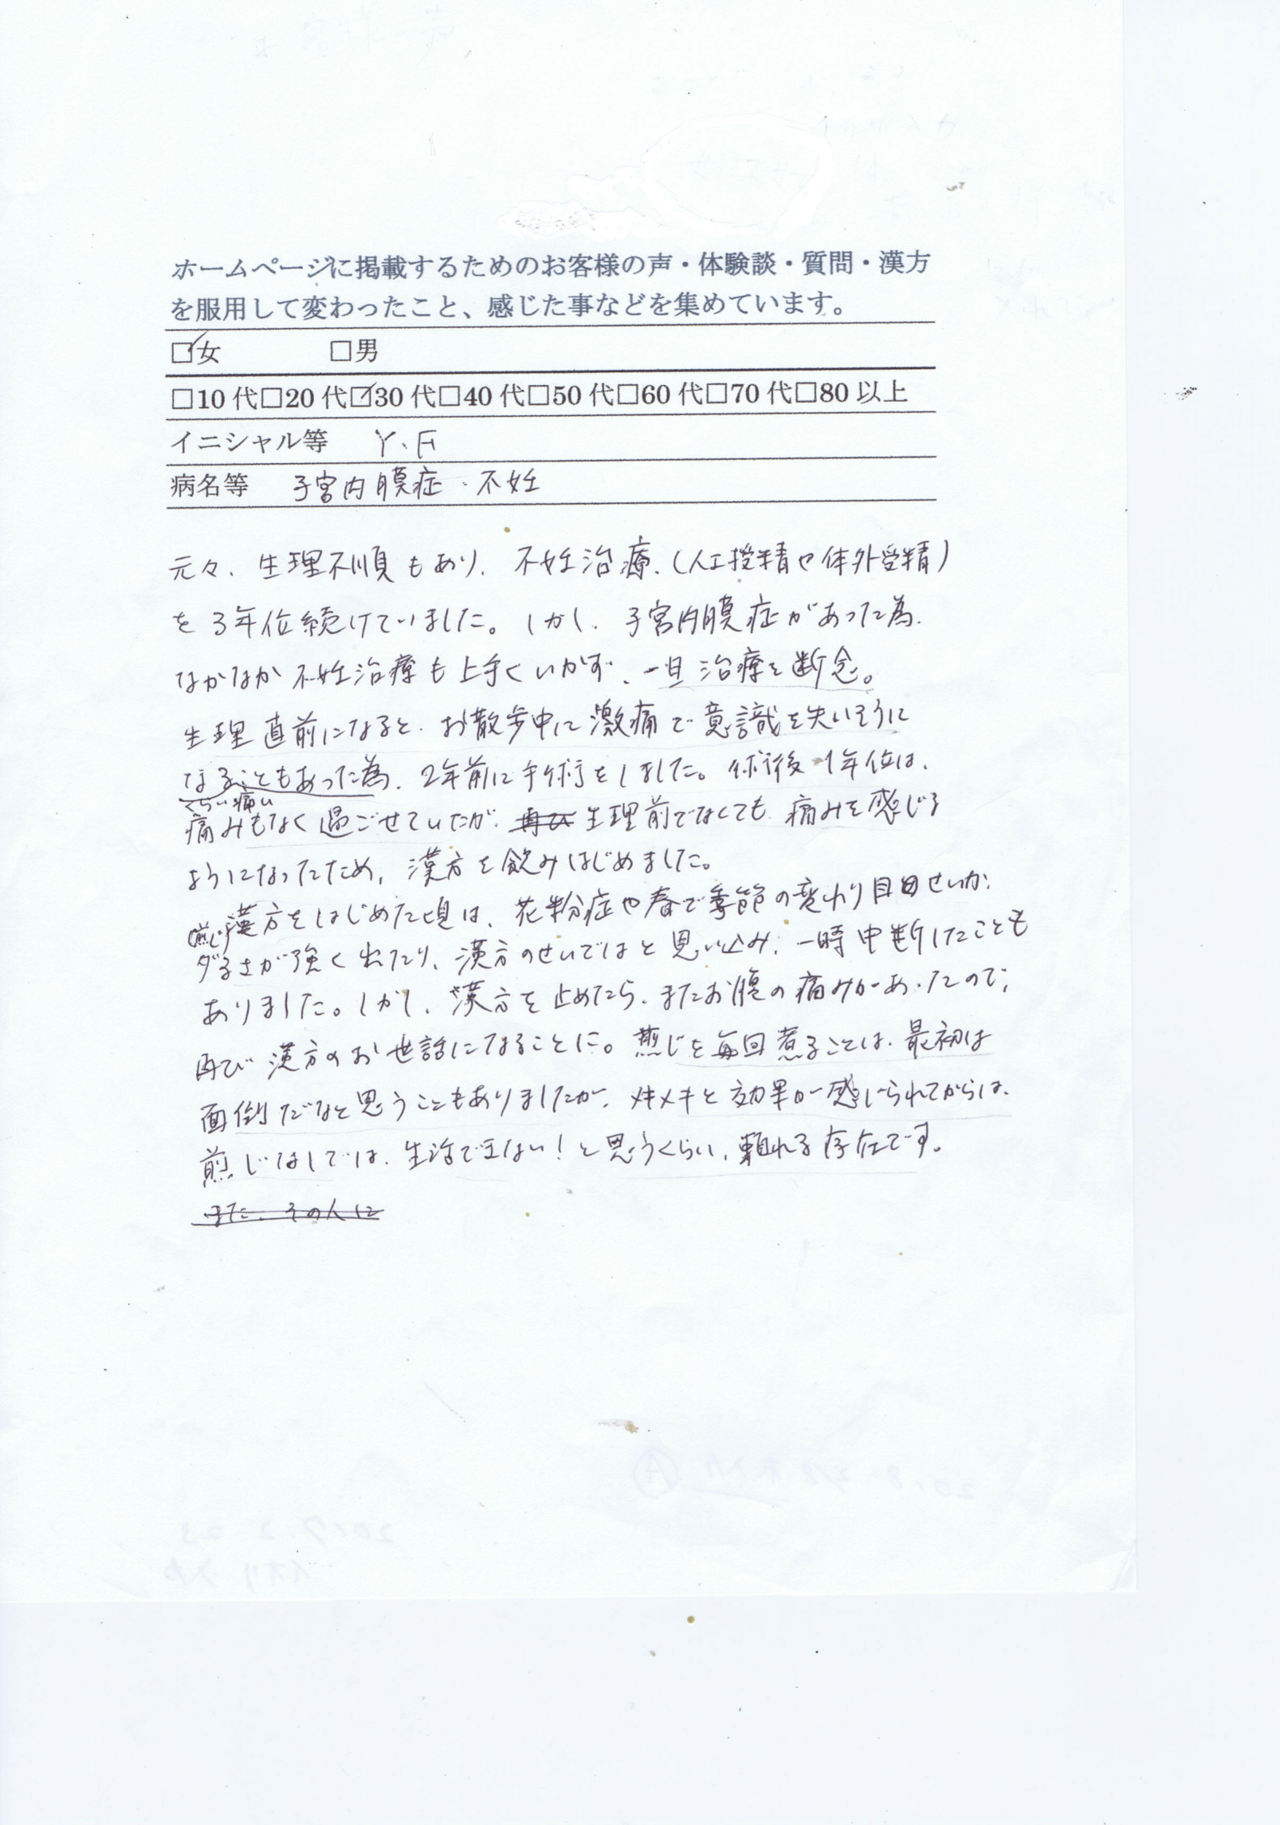 ホームページに掲載するためのお客様の声・体験談・質問・漢方
を服用して変わったこと、感じた事などを集めています。
☑女 □男
□10代□20代☑30代□40代□50代□60代□70代□80以上
イニシャル等 Y.F
病名等 子宮内膜症・不妊
元々、生理不順もあり、不妊治療、(人工授精や体外受精)
を3年位続けていました。しかし、子宮内膜症があった為、
なかなか不妊治療も上手くいかず、一旦治療を断念。
生理直前になると、お散歩中に激痛で意識を失いそうに
なることもあった為、2年前に手術をしました。術後1年位は、
くらい痛い
痛みもなく過ごせていたが、再び生理前でなくても痛みを感じる
ようになったため、漢方を飲みはじめました。
煎じ漢方をはじめた頃は、花粉症や春で季節の変わり目のせいか、
ダるさが強く出たり、漢方のせいではと思い込み、一時中断したことも
ありました。しかし、漢方を止めたら、またお腹の痛みがあったので、
再び漢方のお世話になることに。煎じを毎回煮ることは、最初は
面倒だなと思うこともありましたが、メキメキと効果が感じられてからは、
煎じなしでは、生活できない!と思うくらい、頼れる存在です。
また、その人に